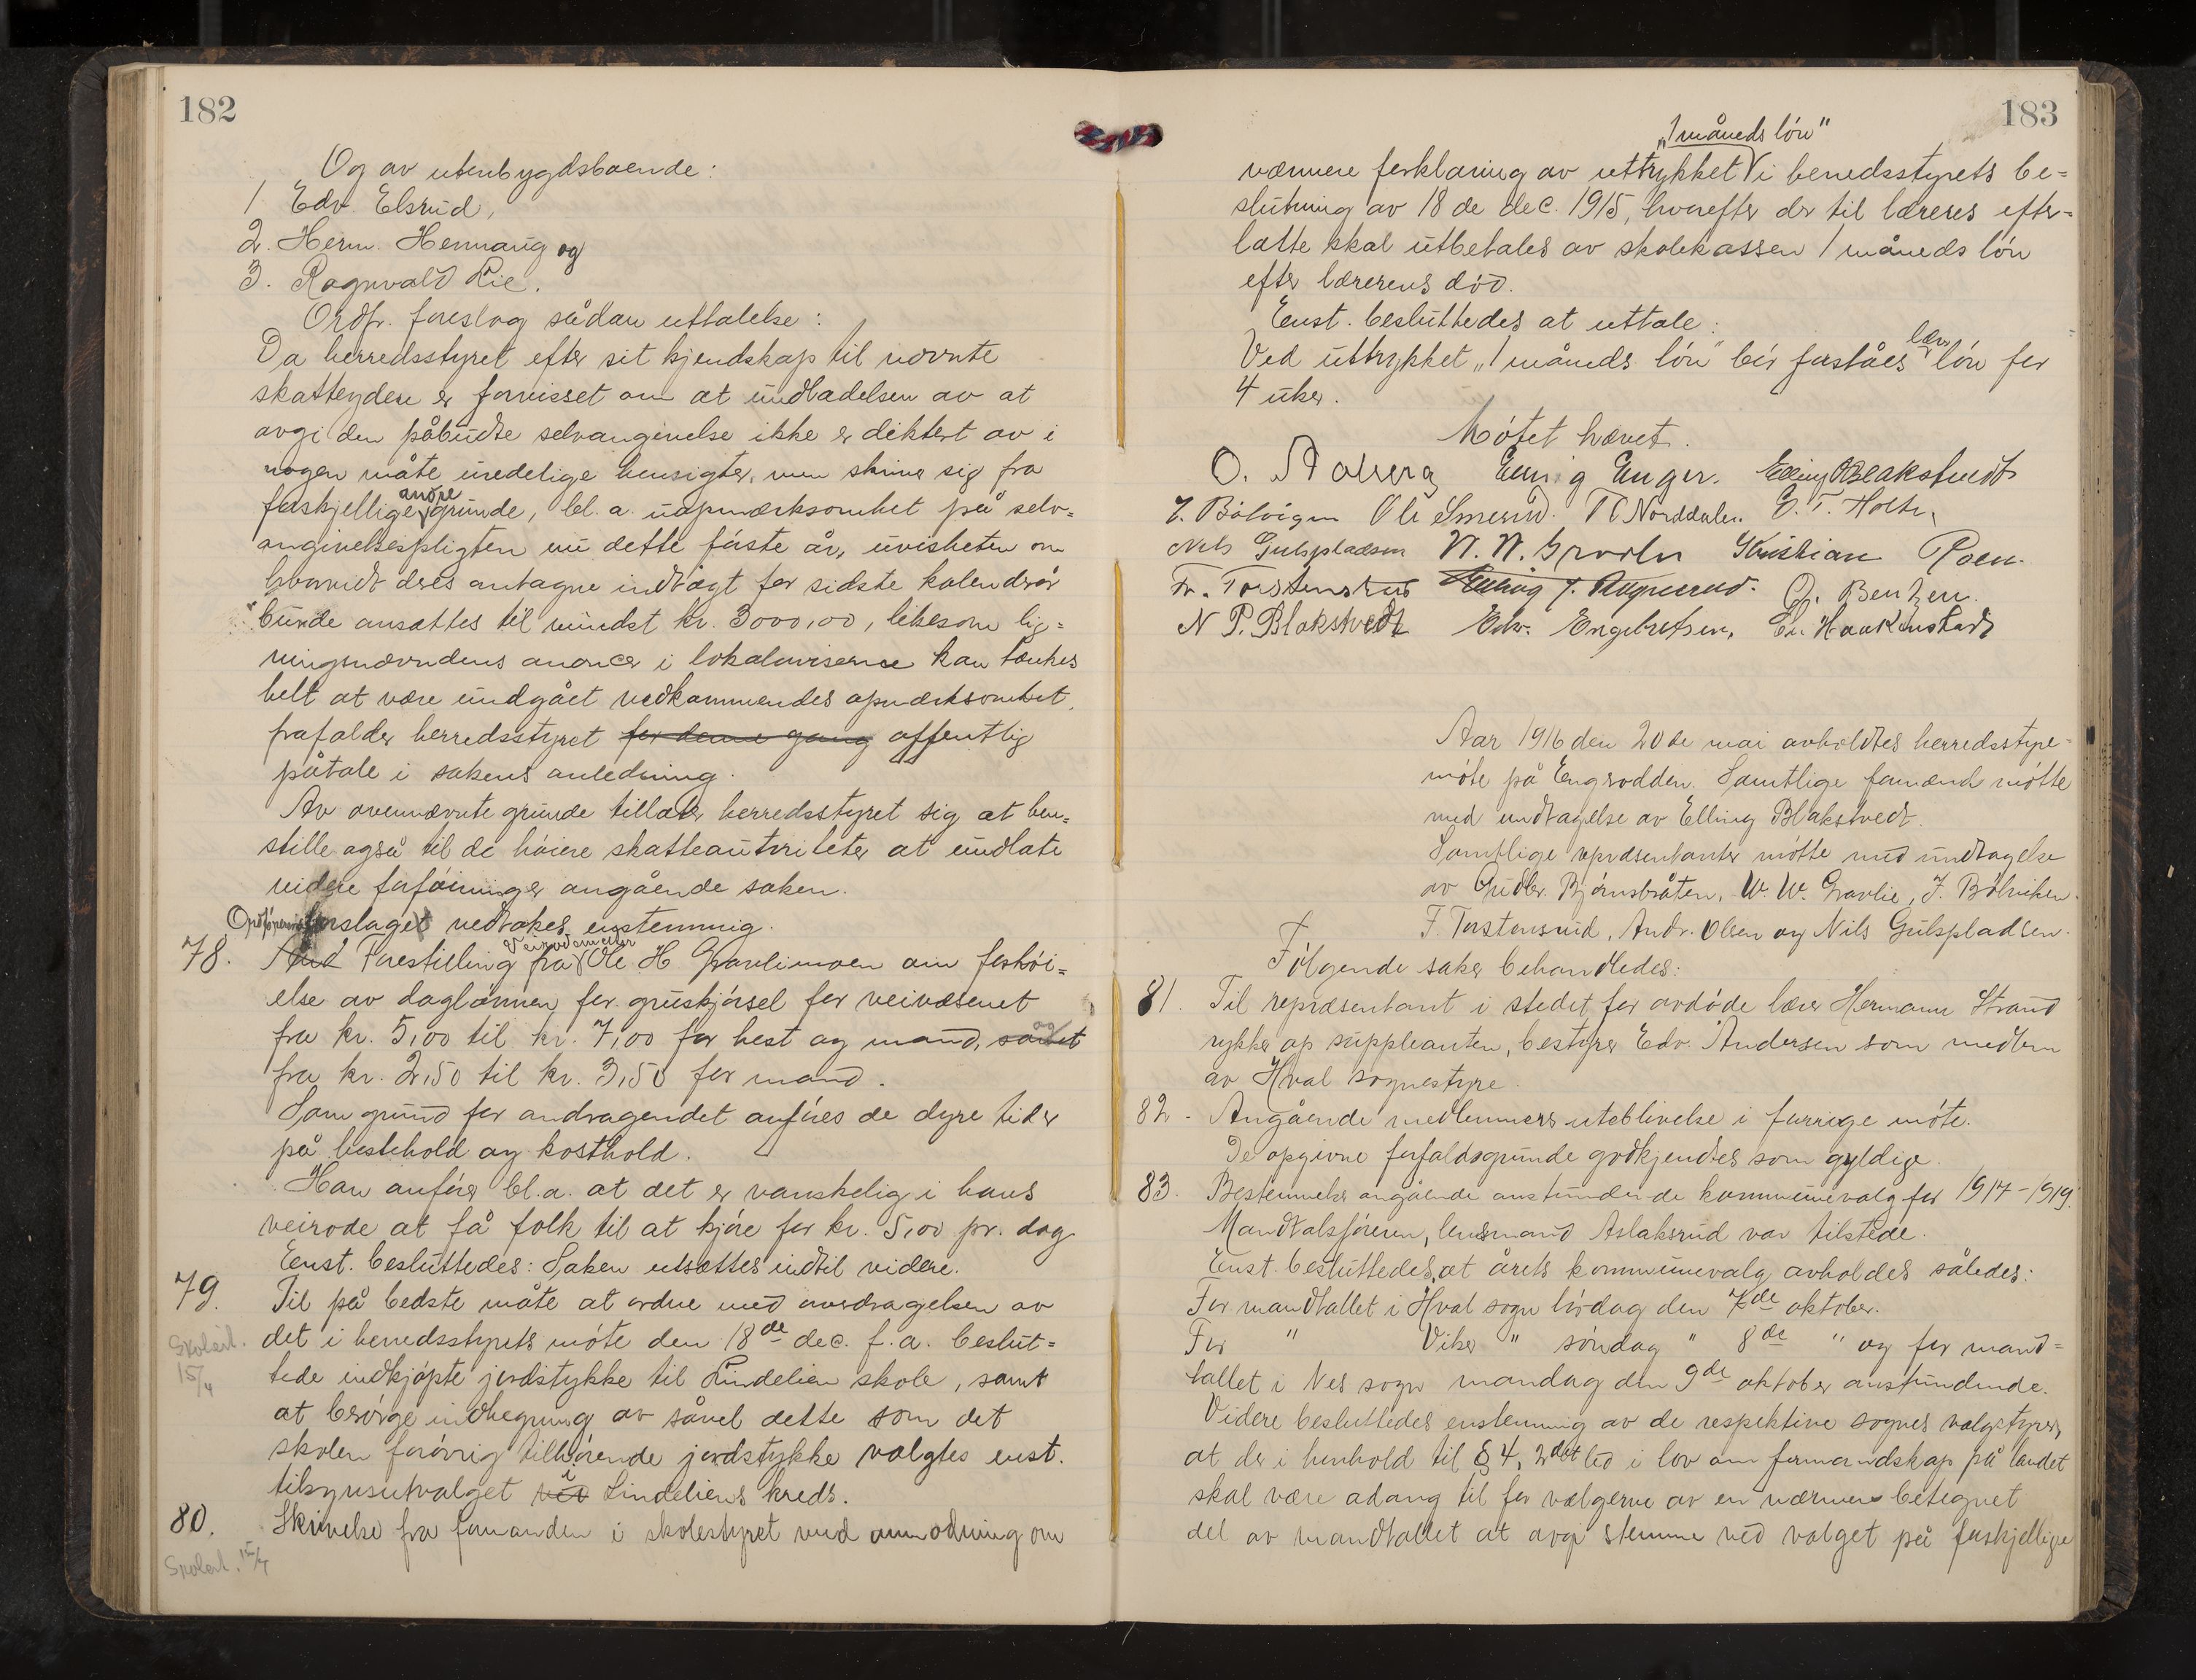 182
Og av utenbygdsboende:
1 Edv. Elsrud,
2. Herm. Hennaug og
3. Ragnvald Lie.
Ordf. foreslog sådan uttalelse:
Da herredsstyret efter sit kjendskap til nævnte
skatteydere er forvisset om at undladelsen av at
avgi den påbudte selvangivelse ikke er diktert av i
nogen måte uredelige hensigter, men skriver sig fra
forskjellige andre grunde, bl. a. uopmærksomhet på selv-
angivelsespligten nu dette første år, uvisheten om
hvorvidt deres antagne indtægt for sidste kalenderår
burde ansættes til mindst kr. 3000,00, likesom lig-
ningsnævndens anoncer i lokalaviserne kan tænkes
helt at være undgået vedkommendes opmærksomhet,
frafalder herredsstyret for denne gang offentlig
påtale i sakens anledning.
Av ovennævnte grunde tillater herredsstyret sig at hen-
stille også til de høiere skatteautoriteter at undlate
videre forføininger angående saken.
Ordførerens forslaget vedtokes enstemmig.
78. And Forestilling fra Veivogtmeller Ole H. Gravlimoen om forhøi-
else av daglønnen for gruskjørsel for veivæsenet
fra kr. 5,00 til kr. 7,00 for hest og mand, samt og
fra kr. 2,50 til kr. 3,50 for mand.
Som grund for andragendet anføres de dyre tider
på hestehold og kosthold.
Han anfører bl.a. at det er vanskelig i hans
veirode at få folk til at kjøre for kr. 5,00 pr. dag.
Enst. besluttedes: Saken utsættes indtil videre.
79. Til på bedste måte at ordne med overdragelsen av
Skolest. 15/4
det i herredsstyrets møte den 18de dec. f.a. beslut-
tede indkjøpte jordstykke til Lindelien skole, samt
at besørge indhegning av såvel dette som det
skolen forøvrig tilhørende jordstykke valgtes enst.
tilsynsutvalget ved i Lindeliens kreds.
80. Skrivelse fra formanden i skolestyret med anmodning om
Skolest. 15/4
183
nærmere forklaring av uttrykket „1 måneds løn" i herredsstyrets be-
slutning av 18de dec. 1915, hvorefter der til læreres efter-
latte skal utbetales av skolekassen 1 måneds løn
efter lærerens død.
Enst. besluttedes at uttale:
Ved uttrykket „1 måneds løn" bør forståes lærerløn for
4 uker.
Møtet hævet.
O. Aaberg Elling Enger. Elling Blakstvedt
J. Bølvigen Ole Smerud. T C Norddalen. G. T. Holte.
Nils Gulspladsen W. W. Gravlie Kristian Roen.
Fr. Torstensrud O. Bentzen.
N P. Blakstvedt Edv. Engebretsen. En Haakenstad
Aar 1916 den 20de mai avholdtes herredsstyre-
møte på Engrodden. Samtlige formænd møtte
med undtagelse av Elling Blakstvedt.
Samtlige repræsentanter møtte med undtagelse
av Gudbr. Bjørnsbråten, W. W. Gravlie, J. Bølviken
F. Torstensrud, Andr. Olsen og Nils Gulspladsen.
Følgende saker behandledes:
81. Til repræsentant i stedet for avdøde lærer Hermann Strand
rykker op suppleanten, bestyrer Edv. Andersen som medlem
av Hval sognestyre.
82. Angående medlemmers uteblivelse i forrige møte.
De opgivne forfaldsgrunde godkjendtes som gyldige.
83. Bestemmelse angående anstundende kommunevalg for 1917-1919.
Mandtalsføreren, lensmand Aslaksrud var tilstede.
Enst. besluttedes at årets kommunevalg avholdes således:
For mandtallet i Hval sogn lørdag den 7de oktober.
For " Viker " søndag " 8de " og for mand-
tallet i Nes sogn mandag den 9de oktober anstundende.
Videre besluttedes enstemmig av de respektive sognes valgstyrer,
at der i henhold til § 4, 2det led i lov om formandskap på landet
skal være adang til for vælgerne av en nærmere betegnet
del av mandtallet at avgi stemme ved valget på forskjellige